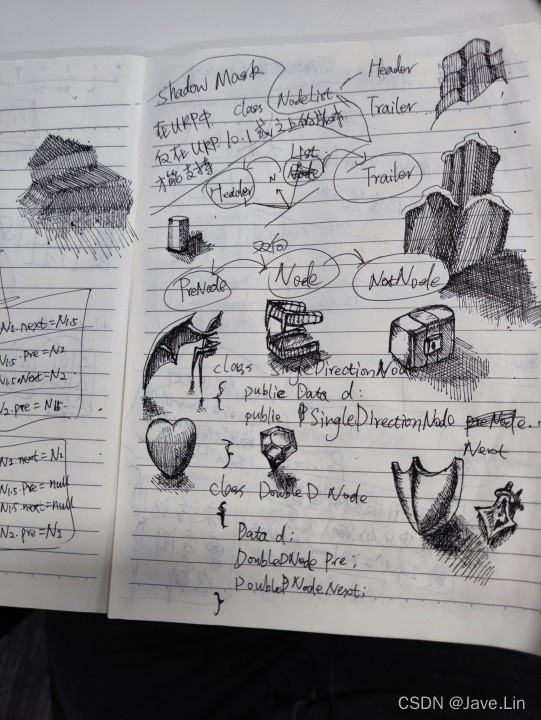 N1.next=N1.5
N1.5.Pre=N2
N1.5.Next=N2
N2.pre=N1.5
N1.next=N2
N1.5.Pre=null
N1.5.next=null
N2.pre=N1
Shadow Mask
在URP中
仅在URP 10.1或以上的
才能支持
class NodeList
Header
Trailer
List
Node
Header
N
Trailer
双向
PreNode
Node
NextNode
class SingleDirectionNode
{
public Data d;
public SingleDirectionNode
Next
}
class DoubleD Node
{
Data d;
DoubleDNode Pre;
DoubleDNode Next;
}
CSDN @Jave.Lin